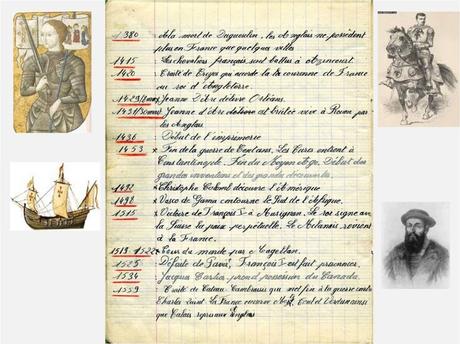 1380 * A la mort de Duguesclin, les Anglais ne possèdent
plus en France que quelques villes
1415 * Les chevaliers français sont battus à Azincourt.
1420 * Traité de Troyes qui accorde la couronne de France
au roi d'Angleterre.
1429(8 mai) Jeanne d'Arc délivre Orléans.
1431(30 mai) Jeanne d'Arc est brûlée vive à Rouen par
les Anglais
1436 * Début de l'imprimerie
1453 * Fin de la guerre de Cent ans. Les Turcs entrent à
Constantinople. Fin du Moyen Age. Début des
grandes inventions et des grandes découvertes.
1492 * Christophe Colomb découvre l'Amérique
1498 * Vasco de Gama contourne le Sud de l'Afrique.
1515 * Victoire de François 1er à Marignan. Le roi signe avec
la Suisse la paix perpétuelle. Le Milanais revient
à la France.
1519-1522 * Tour du monde par Magellan.
1525 Défaite de Pavie, François 1er est fait prisonnier.
1534 Jacques Cartier prend possession du Canada.
1559 * Traité de Cateau Cambrésis qui met fin à la guerre contre
Charles Quint. La France recouvre Metz, Toul et Verdun ainsi
que Calais repris aux Anglais